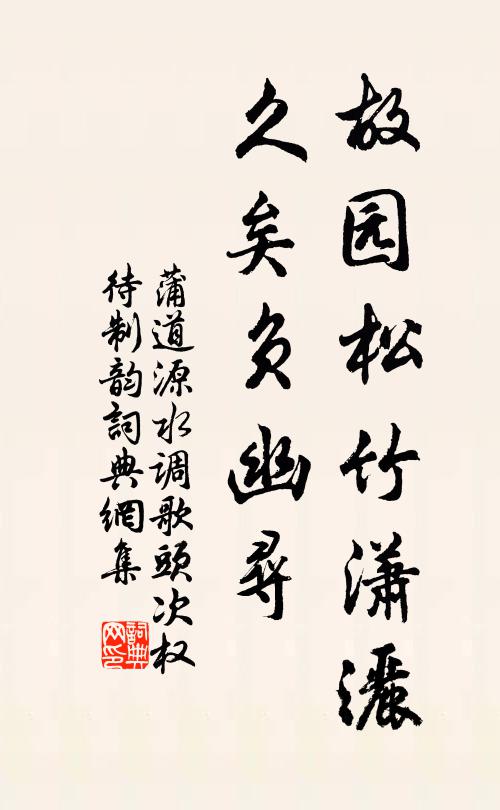 故园松竹瀟灑
久矣负幽尋
蒲道源水调歌頭次权
待制韵詞典網集
詞典
网印